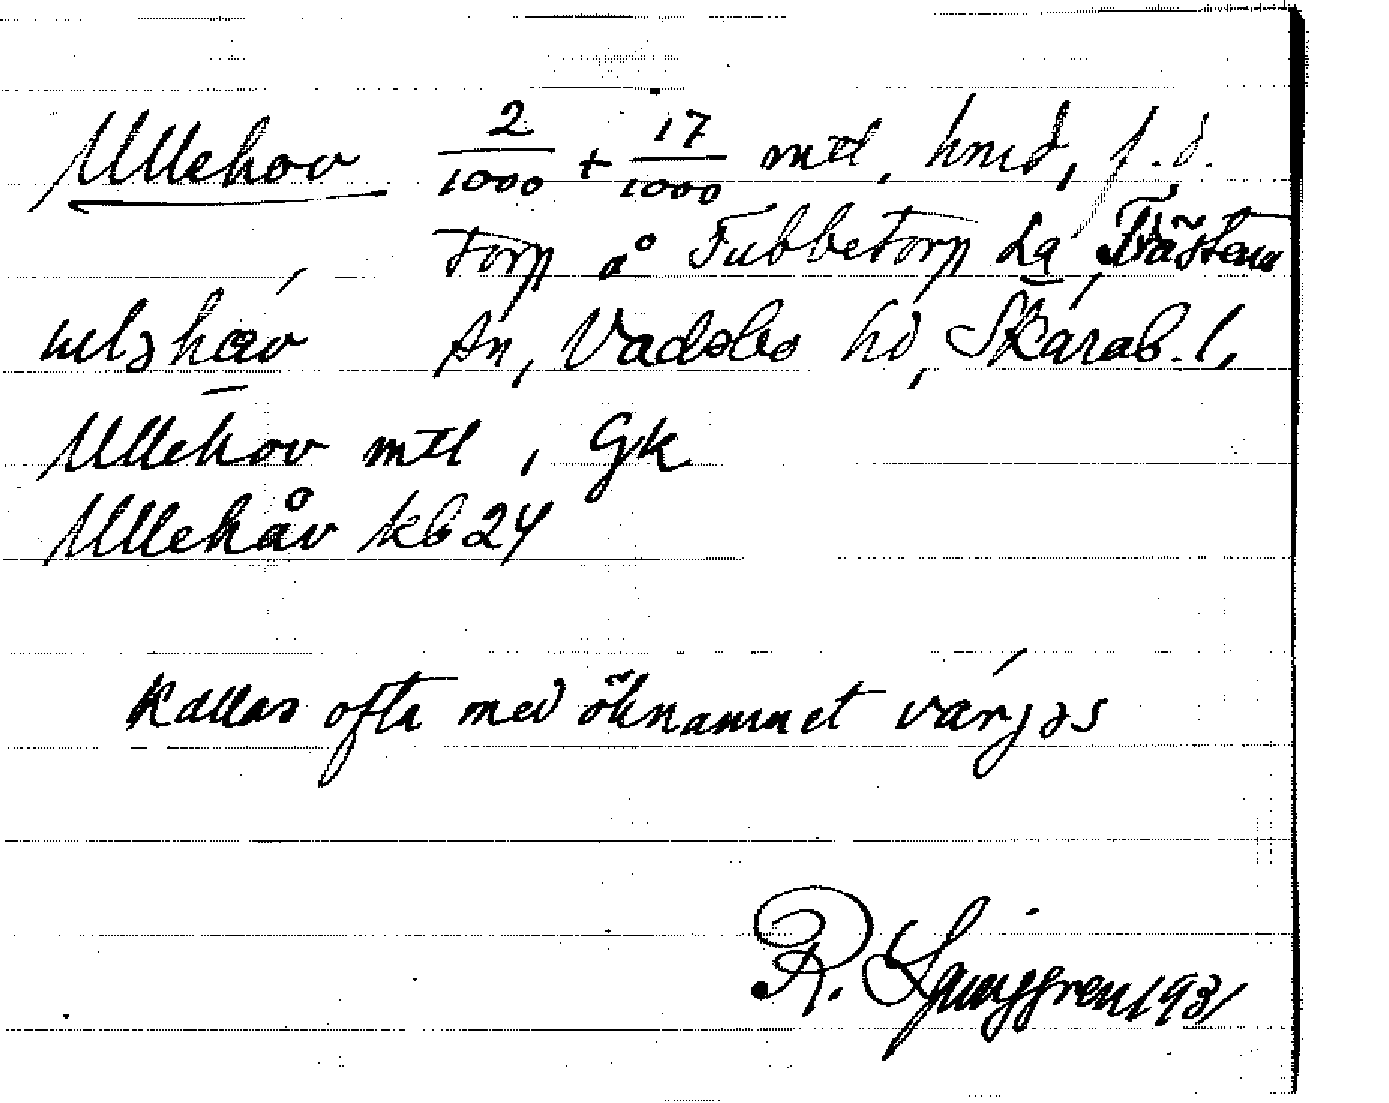 Ullehov 2/1000 + 17/1000 mtl, hmd, f.d.
torp å Tubbetorp La, Trästena
sn, Vadsbo hd, Skarab. l.
Ullehov mtl, Gk
Ullehåv kb 24
Kallas ofta med öknamnet
R. Ljunggren 1931